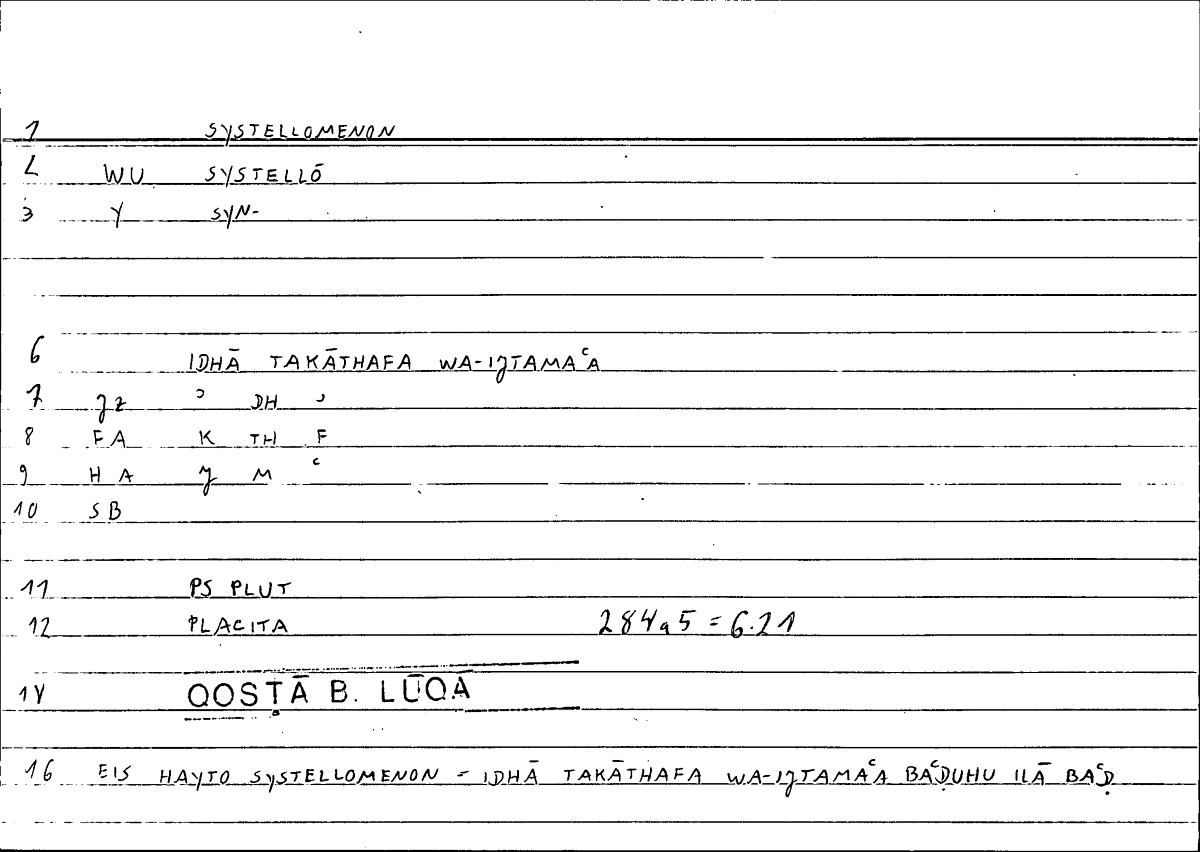 1 SYSTELLOMENON
2 WU SYSTELLŌ
3 Y SYN-
6 IDHĀ TAKĀTHAFA WA-IJTAMAᶜA
7 JZ ʾ DH ʾ
8 FA K TH F
9 HA J M ᶜ
10 SB
11 PS PLUT
12 PLACITA 284a5 = 6.21
14 QOSṬĀ B. LŪQĀ
16 EIS HAYTO SYSTELLOMENON = IDHĀ TAKĀTHAFA WA-IJTAMAᶜA BAᶜḌUHU ILĀ BAᶜḌ